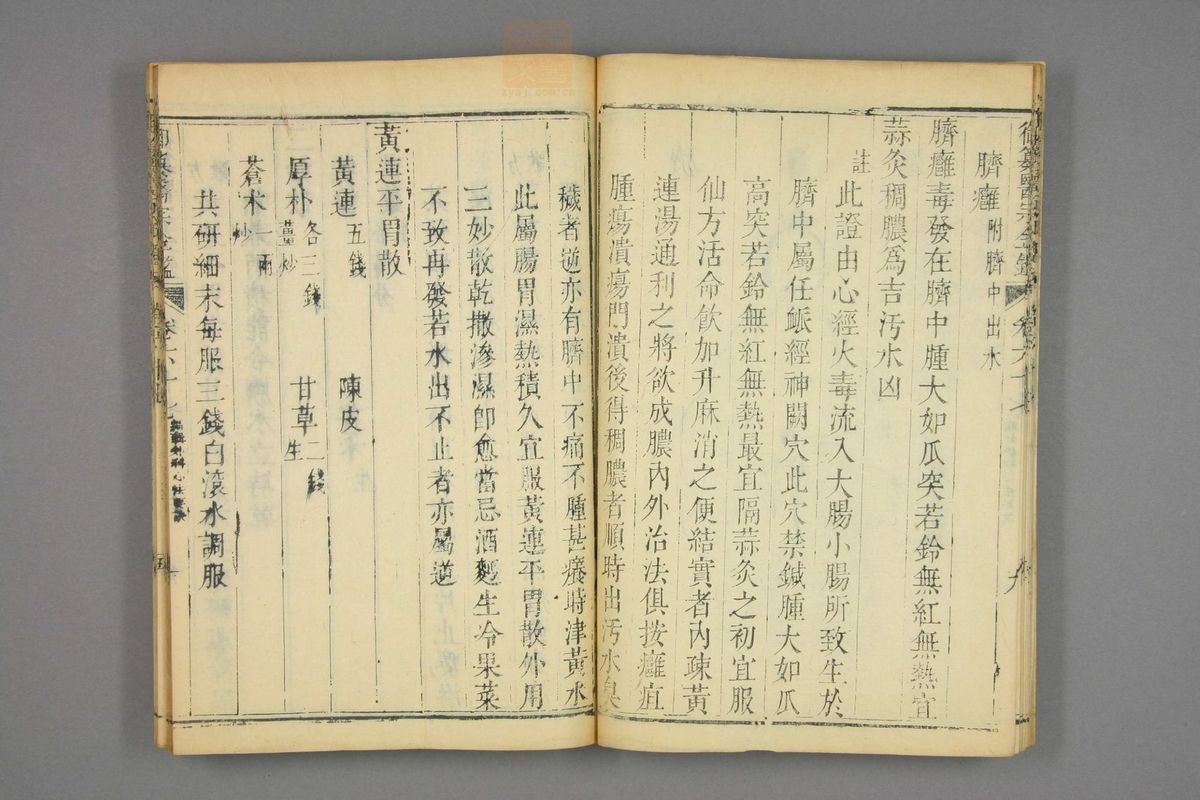 臍癰 附臍中出水
臍癰毒發在臍中腫大如瓜突若鈴無紅無熱宜
蒜灸稠膿爲吉汚水凶
註
此證由心經火毒流入大腸小腸所致生於
臍中屬任脈經神闕穴此穴禁鍼腫大如瓜
高突若鈴無紅無熱最宜隔蒜灸之初宜服
仙方活命飲加升麻消之便結實者內疎黃
連湯通利之將欲成膿內外治法俱按癰疽
腫瘍潰瘍門潰後得稠膿者順時出汚水臭
穢者逆亦有臍中不痛不腫甚癢時津黃水
此屬腸胃濕熱積久宜服黃連平胃散外用
三妙散乾撒滲濕卽愈當忌酒麪生冷果菜
不致再發若水出不止者亦屬逆
黃連平胃散
黃連 五錢 陳皮
厚朴 各三錢 薑炒 甘草 二錢 生
蒼朮 炒 一兩
共研細末每服三錢白滾水調服
御纂醫宗金鑑 卷六十七
卷六十七 編輯外科心法要訣